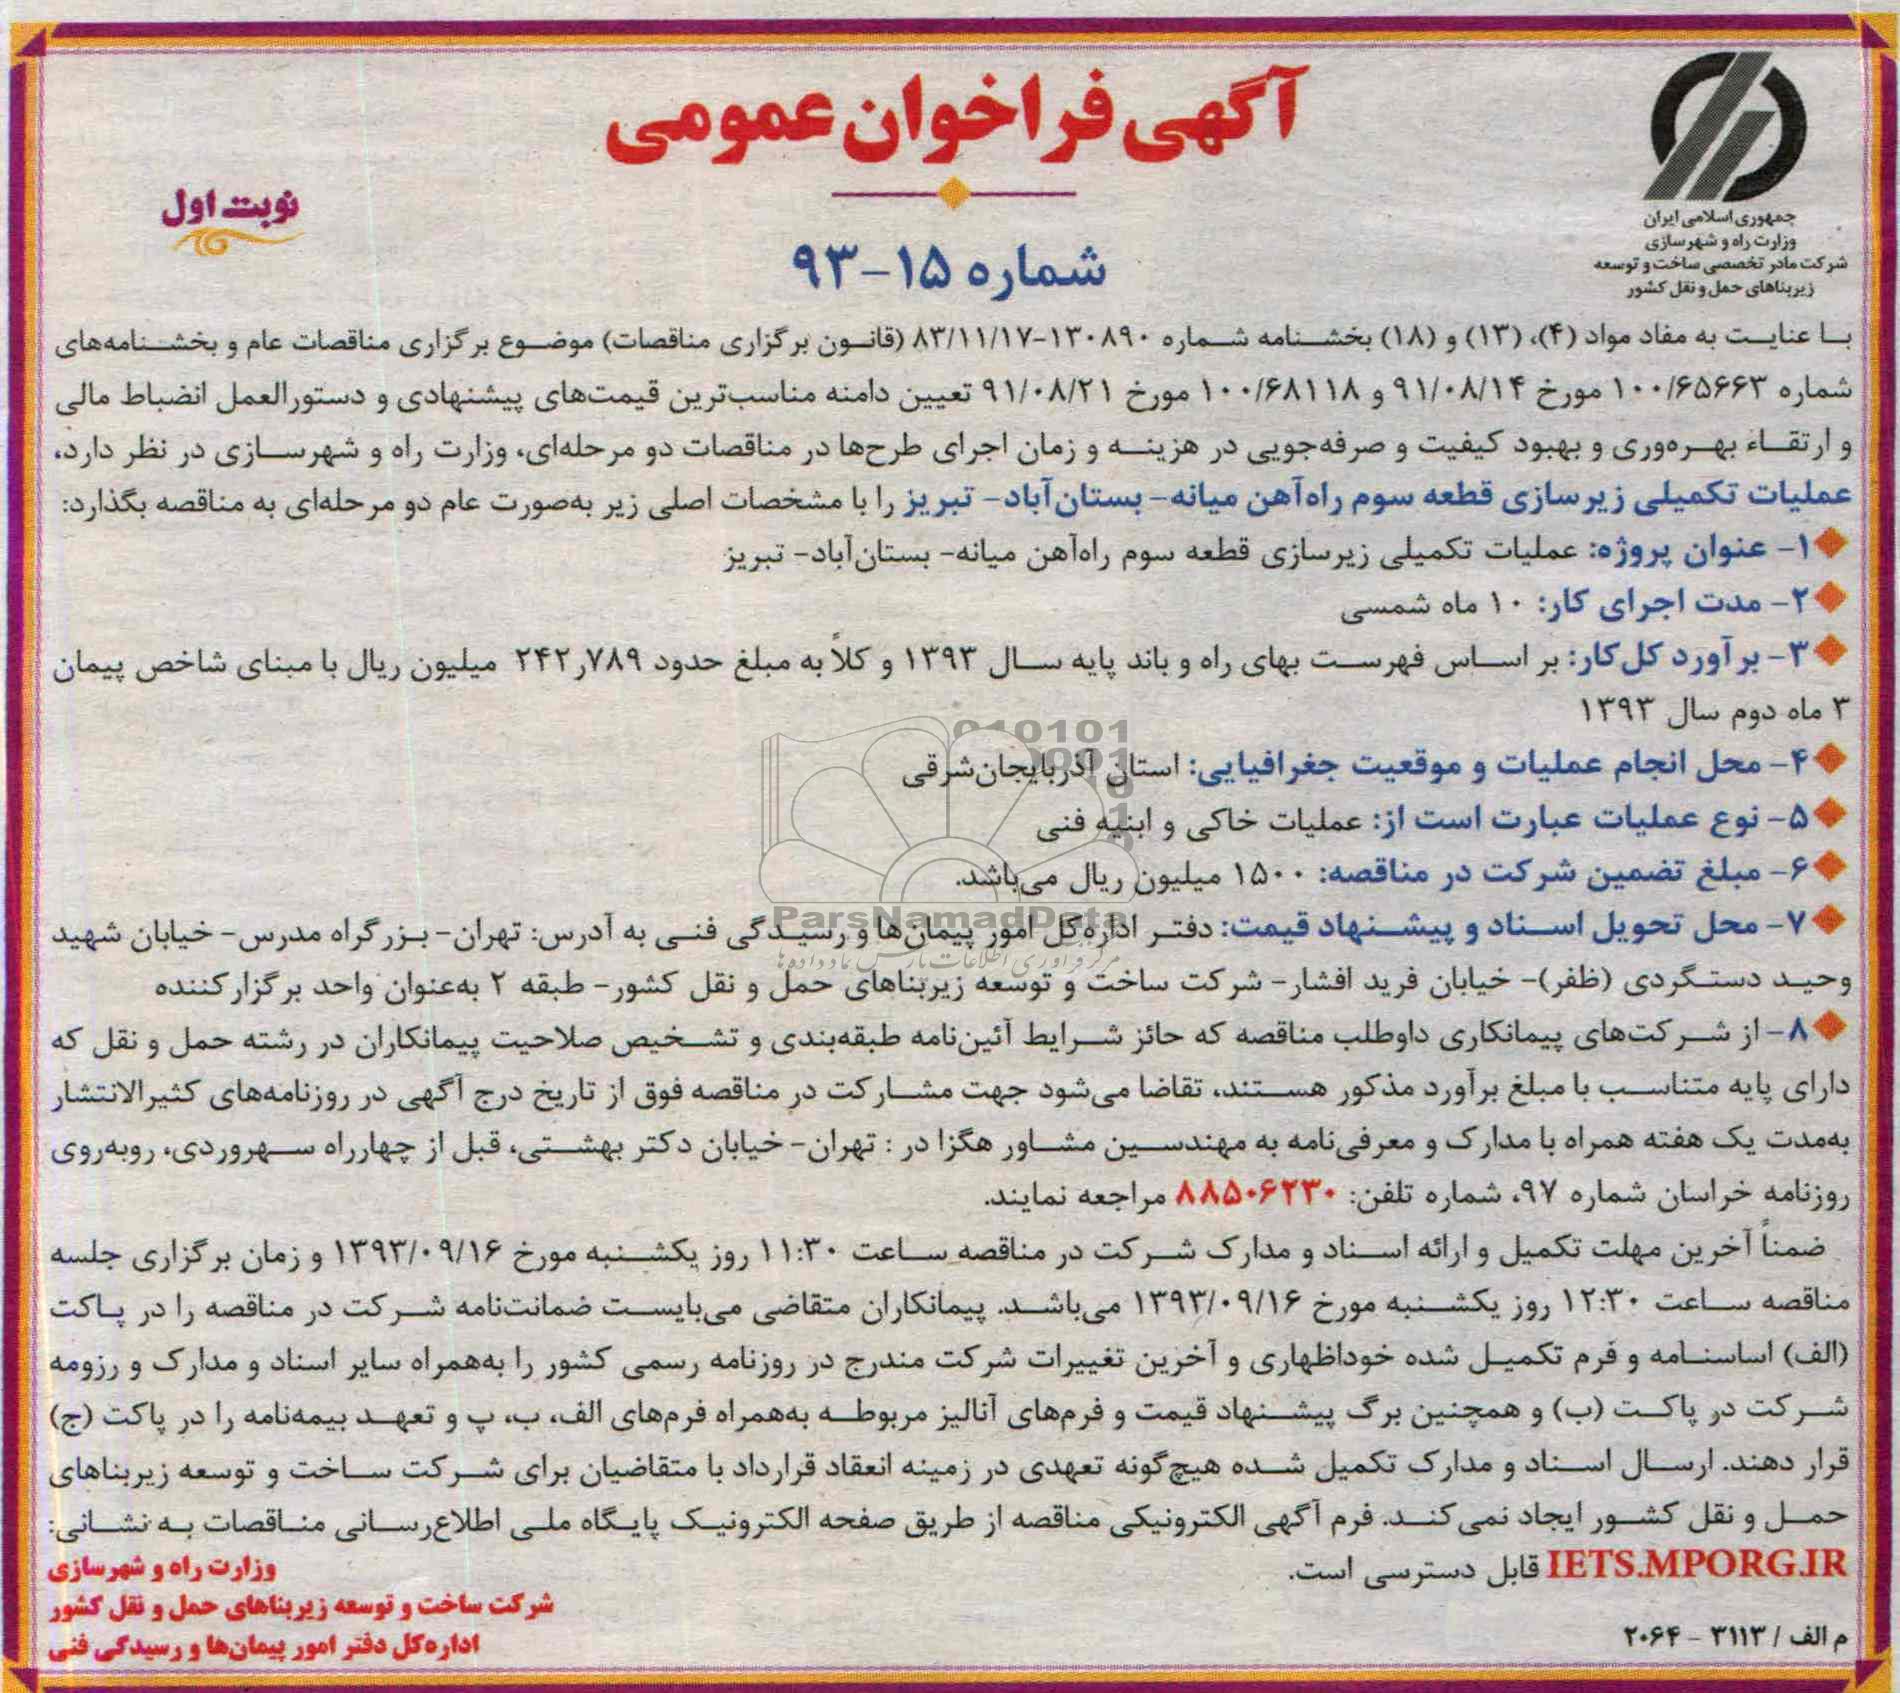 جمهوری اسلامی ایران
وزارت راه و شهرسازی
شرکت مادر تخصصی ساخت و توسعه
زیربناهای حمل و نقل کشور
آگهی فراخوان عمومی
نوبت اول
شماره ۱۵-۹۳
بـا عنایـت به مفاد مواد (۴)، (۱۳) و (۱۸) بخشـنامه شـماره ۱۳۰۸۹۰-۸۳/۱۱/۱۷ (قانـون برگزاری مناقصات) موضـوع برگزاری مناقصات عام و بخشـنامه‌های
شماره ۱۰۰/۶۵۶۶۳ مورخ ۹۱/۰۸/۱۴ و ۱۰۰/۶۸۱۱۸ مورخ ۹۱/۰۸/۲۱ تعیین دامنه مناسب‌ترین قیمت‌های پیشنهادی و دستورالعمل انضباط مالی
و ارتقـاء بهـره‌وری و بهبود کیفیت و صرفه‌جویی در هزینـه و زمان اجرای طرح‌ها در مناقصات دو مرحله‌ای، وزارت راه و شهرسـازی در نظر دارد،
عملیات تکمیلی زیرسازی قطعه سوم راه‌آهن میانه- بستان‌آباد- تبریز را با مشخصات اصلی زیر به‌صورت عام دو مرحله‌ای به مناقصه بگذارد:
۱- عنوان پروژه: عملیات تکمیلی زیرسازی قطعه سوم راه‌آهن میانه- بستان‌آباد- تبریز
۲- مدت اجرای کار: ۱۰ ماه شمسی
۳- برآورد کل‌کار: بر اسـاس فهرسـت بهای راه و باند پایه سـال ۱۳۹۳ و کلاً به مبلغ حدود ۲۴۲٫۷۸۹ میلیون ریال با مبنای شاخص پیمان
۳ ماه دوم سال ۱۳۹۳
۴- محل انجام عملیات و موقعیت جغرافیایی: استان آذربایجان‌شرقی
۵- نوع عملیات عبارت است از: عملیات خاکی و ابنیه فنی
۶- مبلغ تضمین شرکت در مناقصه: ۱۵۰۰ میلیون ریال می‌باشد.
۷- محل تحویل اسـناد و پیشـنهاد قیمت: دفتـر اداره‌کل امور پیمان‌ها و رسیـدگی فنـی به آدرس: تهران- بـزرگراه مدرس- خیابان شهید
وحیـد دستـگردی (ظفر)- خیابان فرید افشار- شرکت ساخت و توسعه زیربناهای حمل و نقل کشور- طبقه ۲ به‌عنوان واحد برگزارکننده
۸- از شـرکت‌های پیمانکاری داوطلب مناقصه که حائز شـرایط آئین‌نامه طبقه‌بندی و تشـخیص صلاحیت پیمانکاران در رشته حمل و نقل که
دارای پایه متناسـب با مبلغ برآورد مذکور هسـتند، تقاضا می‌شود جهت مشـارکت در مناقصه فوق از تاریخ درج آگهی در روزنامه‌های کثیرالانتشار
به‌مدت یک هفته همراه با مدارک و معرفی‌نامه به مهندسـین مشـاور هگزا در : تهران- خیابان دکتر بهشـتی، قبل از چهارراه سـهروردی، روبه‌روی
روزنامه خراسان شماره ۹۷، شماره تلفن: ۸۸۵۰۶۲۳۰ مراجعه نمایند.
ضمناً آخرین مهلت تکمیل و ارائه اسـناد و مدارک شـرکت در مناقصه سـاعت ۱۱:۳۰ روز یکشـنبه مورخ ۱۳۹۳/۰۹/۱۶ و زمان برگزاری جلسه
مناقصه سـاعت ۱۲:۳۰ روز یکشـنبه مورخ ۱۳۹۳/۰۹/۱۶ می‌باشـد. پیمانکاران متقاضی می‌بایسـت ضمانت‌نامه شـرکت در مناقصه را در پـاکت
(الف) اساسنـامه و فرم تکمیـل شده خوداظهاری و آخرین تغییرات شرکت مندرج در روزنامه رسمی کشور را به‌همراه سایر اسناد و مدارک و رزومه
شـرکت در پاکـت (ب) و همچنین برگ پیشـنهاد قیمت و فرم‌های آنالیز مربوطـه به‌همراه فرم‌های الف، ب، پ و تعهـد بیمه‌نامه را در پاکت (ج)
قرار دهند. ارسـال اسـناد و مدارک تکمیل شـده هیچ‌گونه تعهدی در زمینه انعقاد قرارداد با متقاضیان برای شـرکت سـاخت و توسعه زیربناهای
حمـل و نقل کشـور ایجاد نمی‌کنـد. فرم آگهی الکترونیکی مناقصه از طریق صفحه الکترونیـک پایـگاه ملـی اطلاع‌رسـانی مناقصات بـه نشـانی:
IETS.MPORG.IR قابل دسترسی است.
وزارت راه و شهرسازی
شرکت ساخت و توسعه زیربناهای حمل و نقل کشور
اداره‌کل دفتر امور پیمان‌ها و رسیدگی فنی
م الف / ۳۱۱۳ - ۲۰۶۴
ParsNamadData
مرکز فرآوری اطلاعات پارس نماد داده‌ها